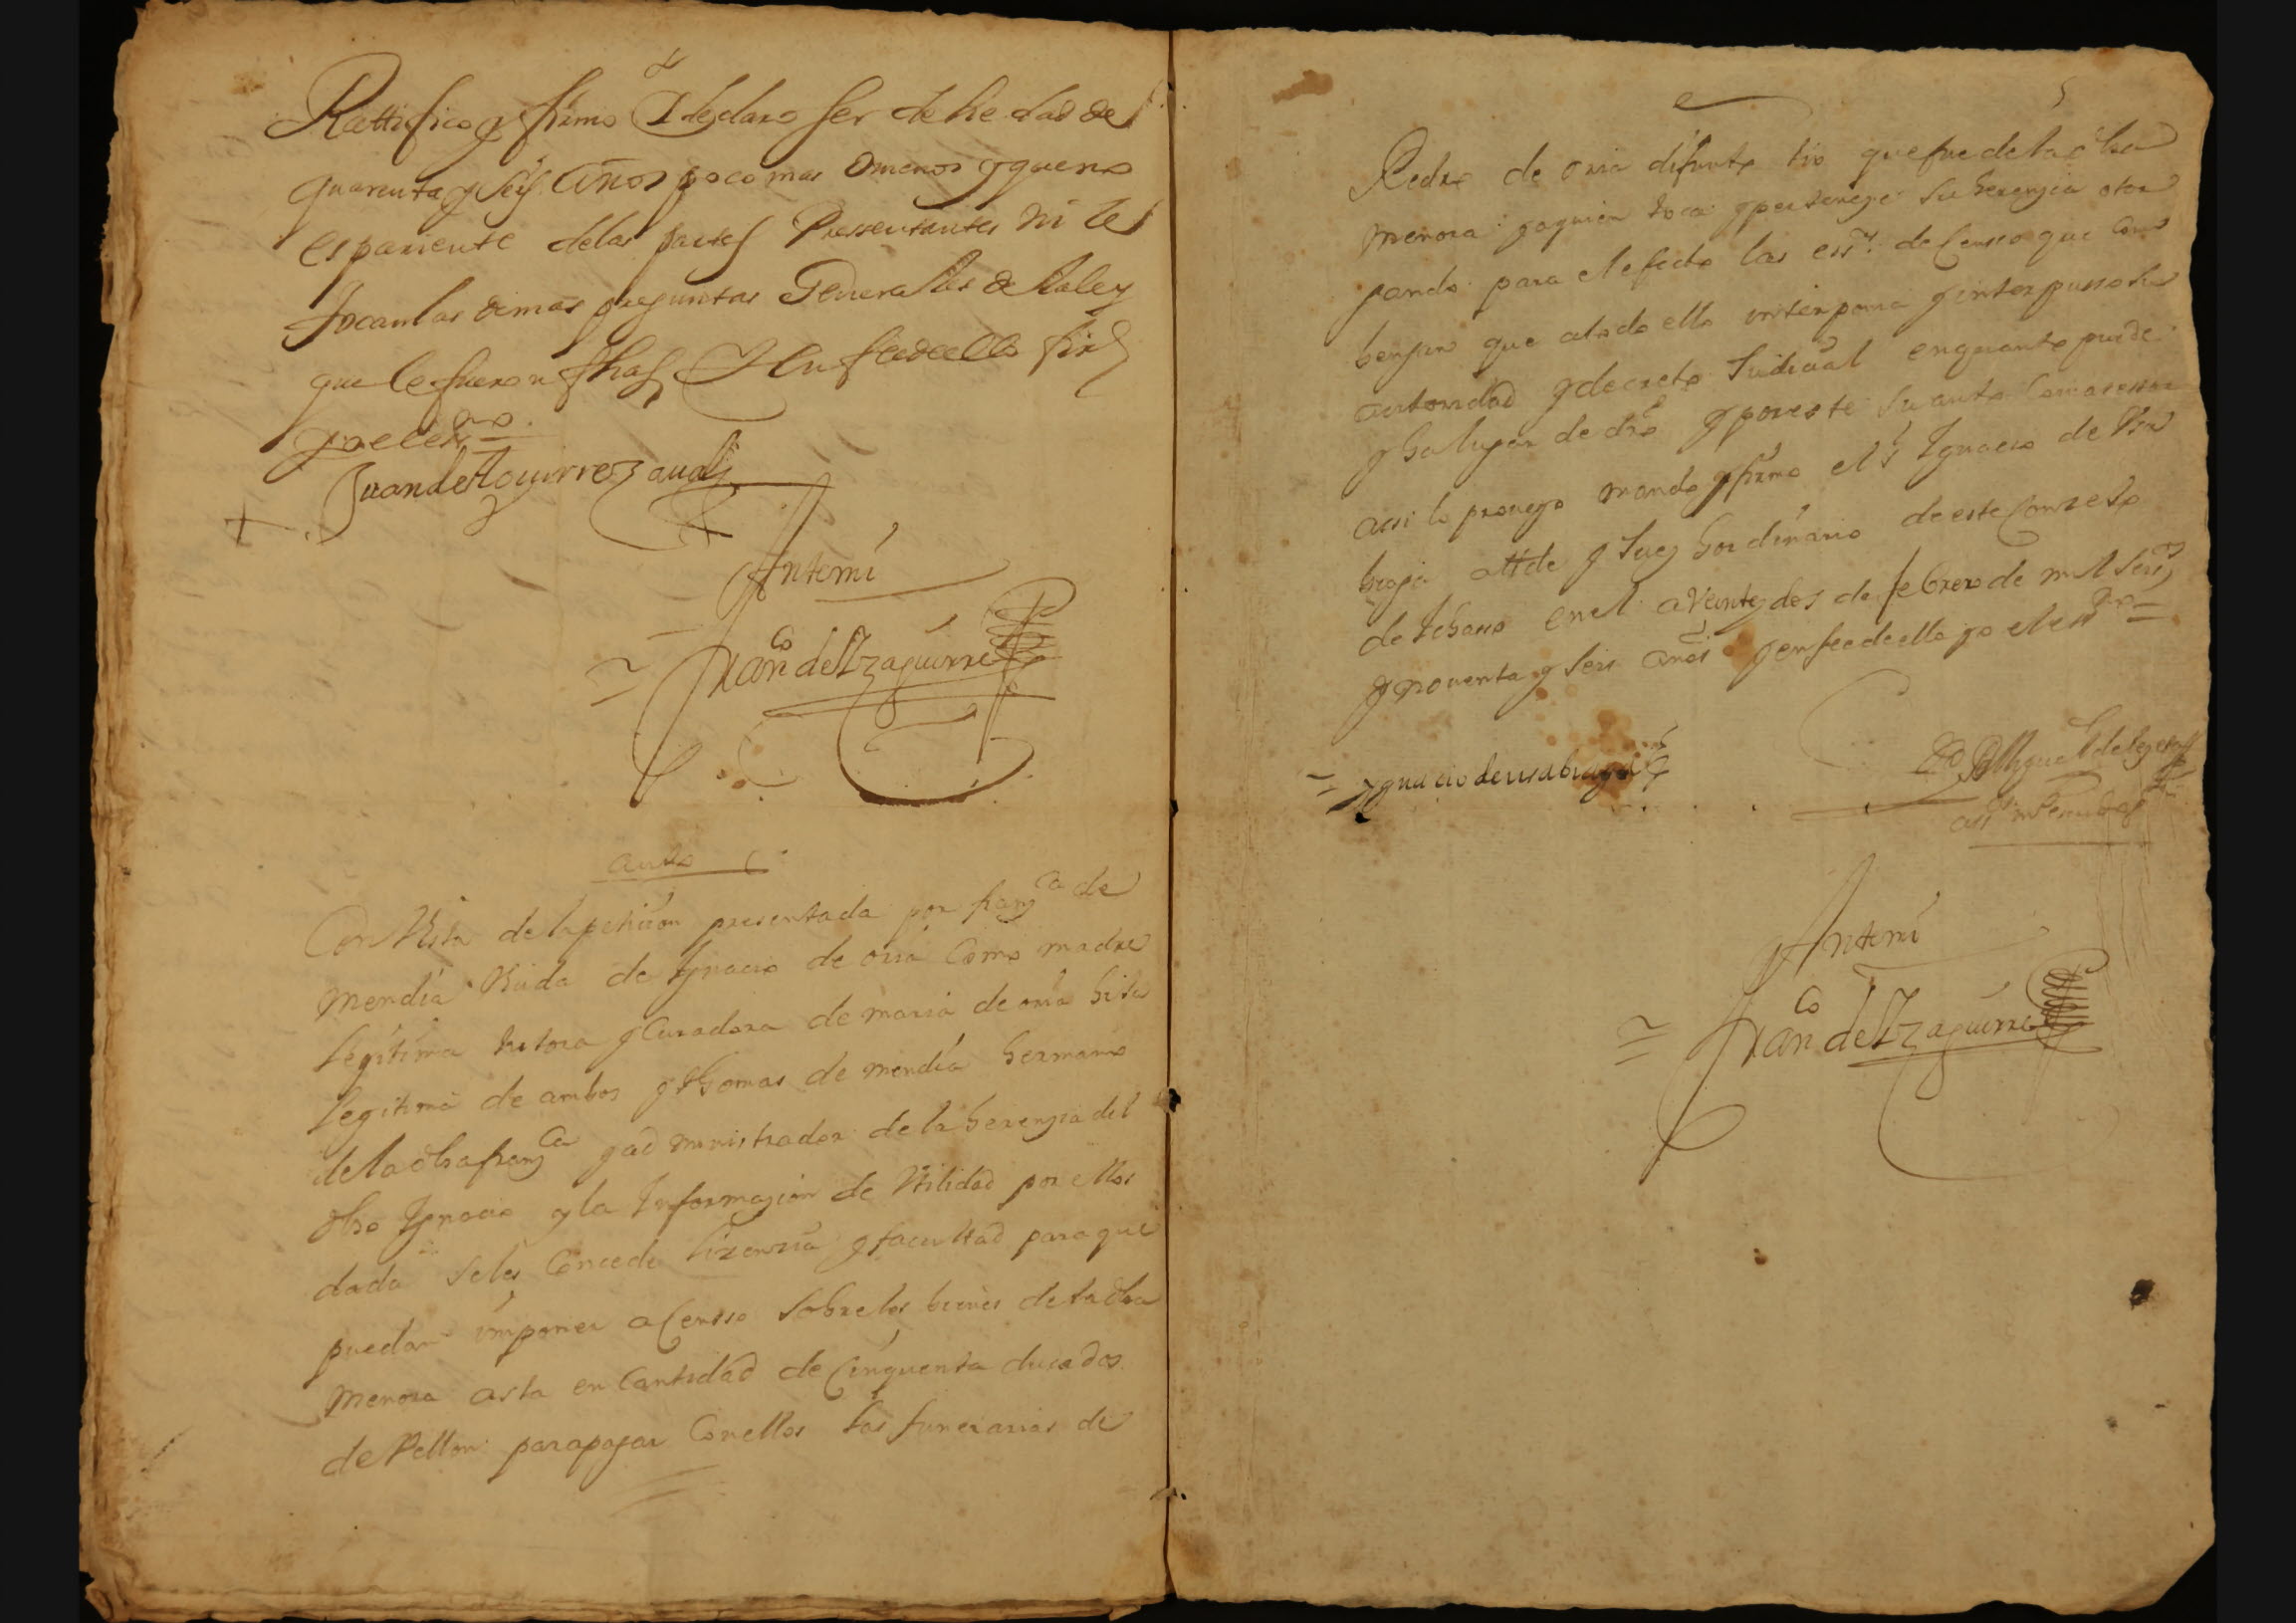 Rattifico y firmo I declaro ser de hedad de
quarenta y seis años poco mas o menos y que no
es pariente de las partes Pressentantes ni le
tocan las demas preguntas Generalles de la ley
que le fueron fhas I en fee de ello firme
yo el essno
Juan de Aguirrezaual
Antemi
Franco de Yzaguirre
auto
Con Vista de la petición presentada por franca de
mendia Viuda de Ygnacio de oria Como madre
legitima tutora y Curadora de maria de oria hija
legitima de ambos y thomas de mendia hermano
de la dha franca y administrador de la herençia del
dho Ygnacio y la Informaçion de Vtilidad por ellos
dada se les Concede lizenzia y facultad para que
puedan imponer a Censso sobre los bienes de la dha
menora asta en Cantidad de Cinquenta ducados
de Vellon para pagar Con ellos las funerarias de
5
Pedro de oria difunto tio que fue de la dha
menora y a quien toca y perteneze su herençia otor
gando para el efecto las essras de Censso que Com
bengan que a todo ello interponia y interpusso su
autoridad y decreto Judicial en quanto puede
y ha lugar de dro y por este su auto Com asessor
assi lo proueyo mando y firmo el sr Ygnacio de Vsa
biaga allde y Juez hordinario de este Conzejo
de Ichasso en el a Veinte y dos de febrero de mil seisos
y nouenta y seis años y en fee de ello yo el essno
Ygnacio de usabiaga
Antemi
Franco de Yzaguirre